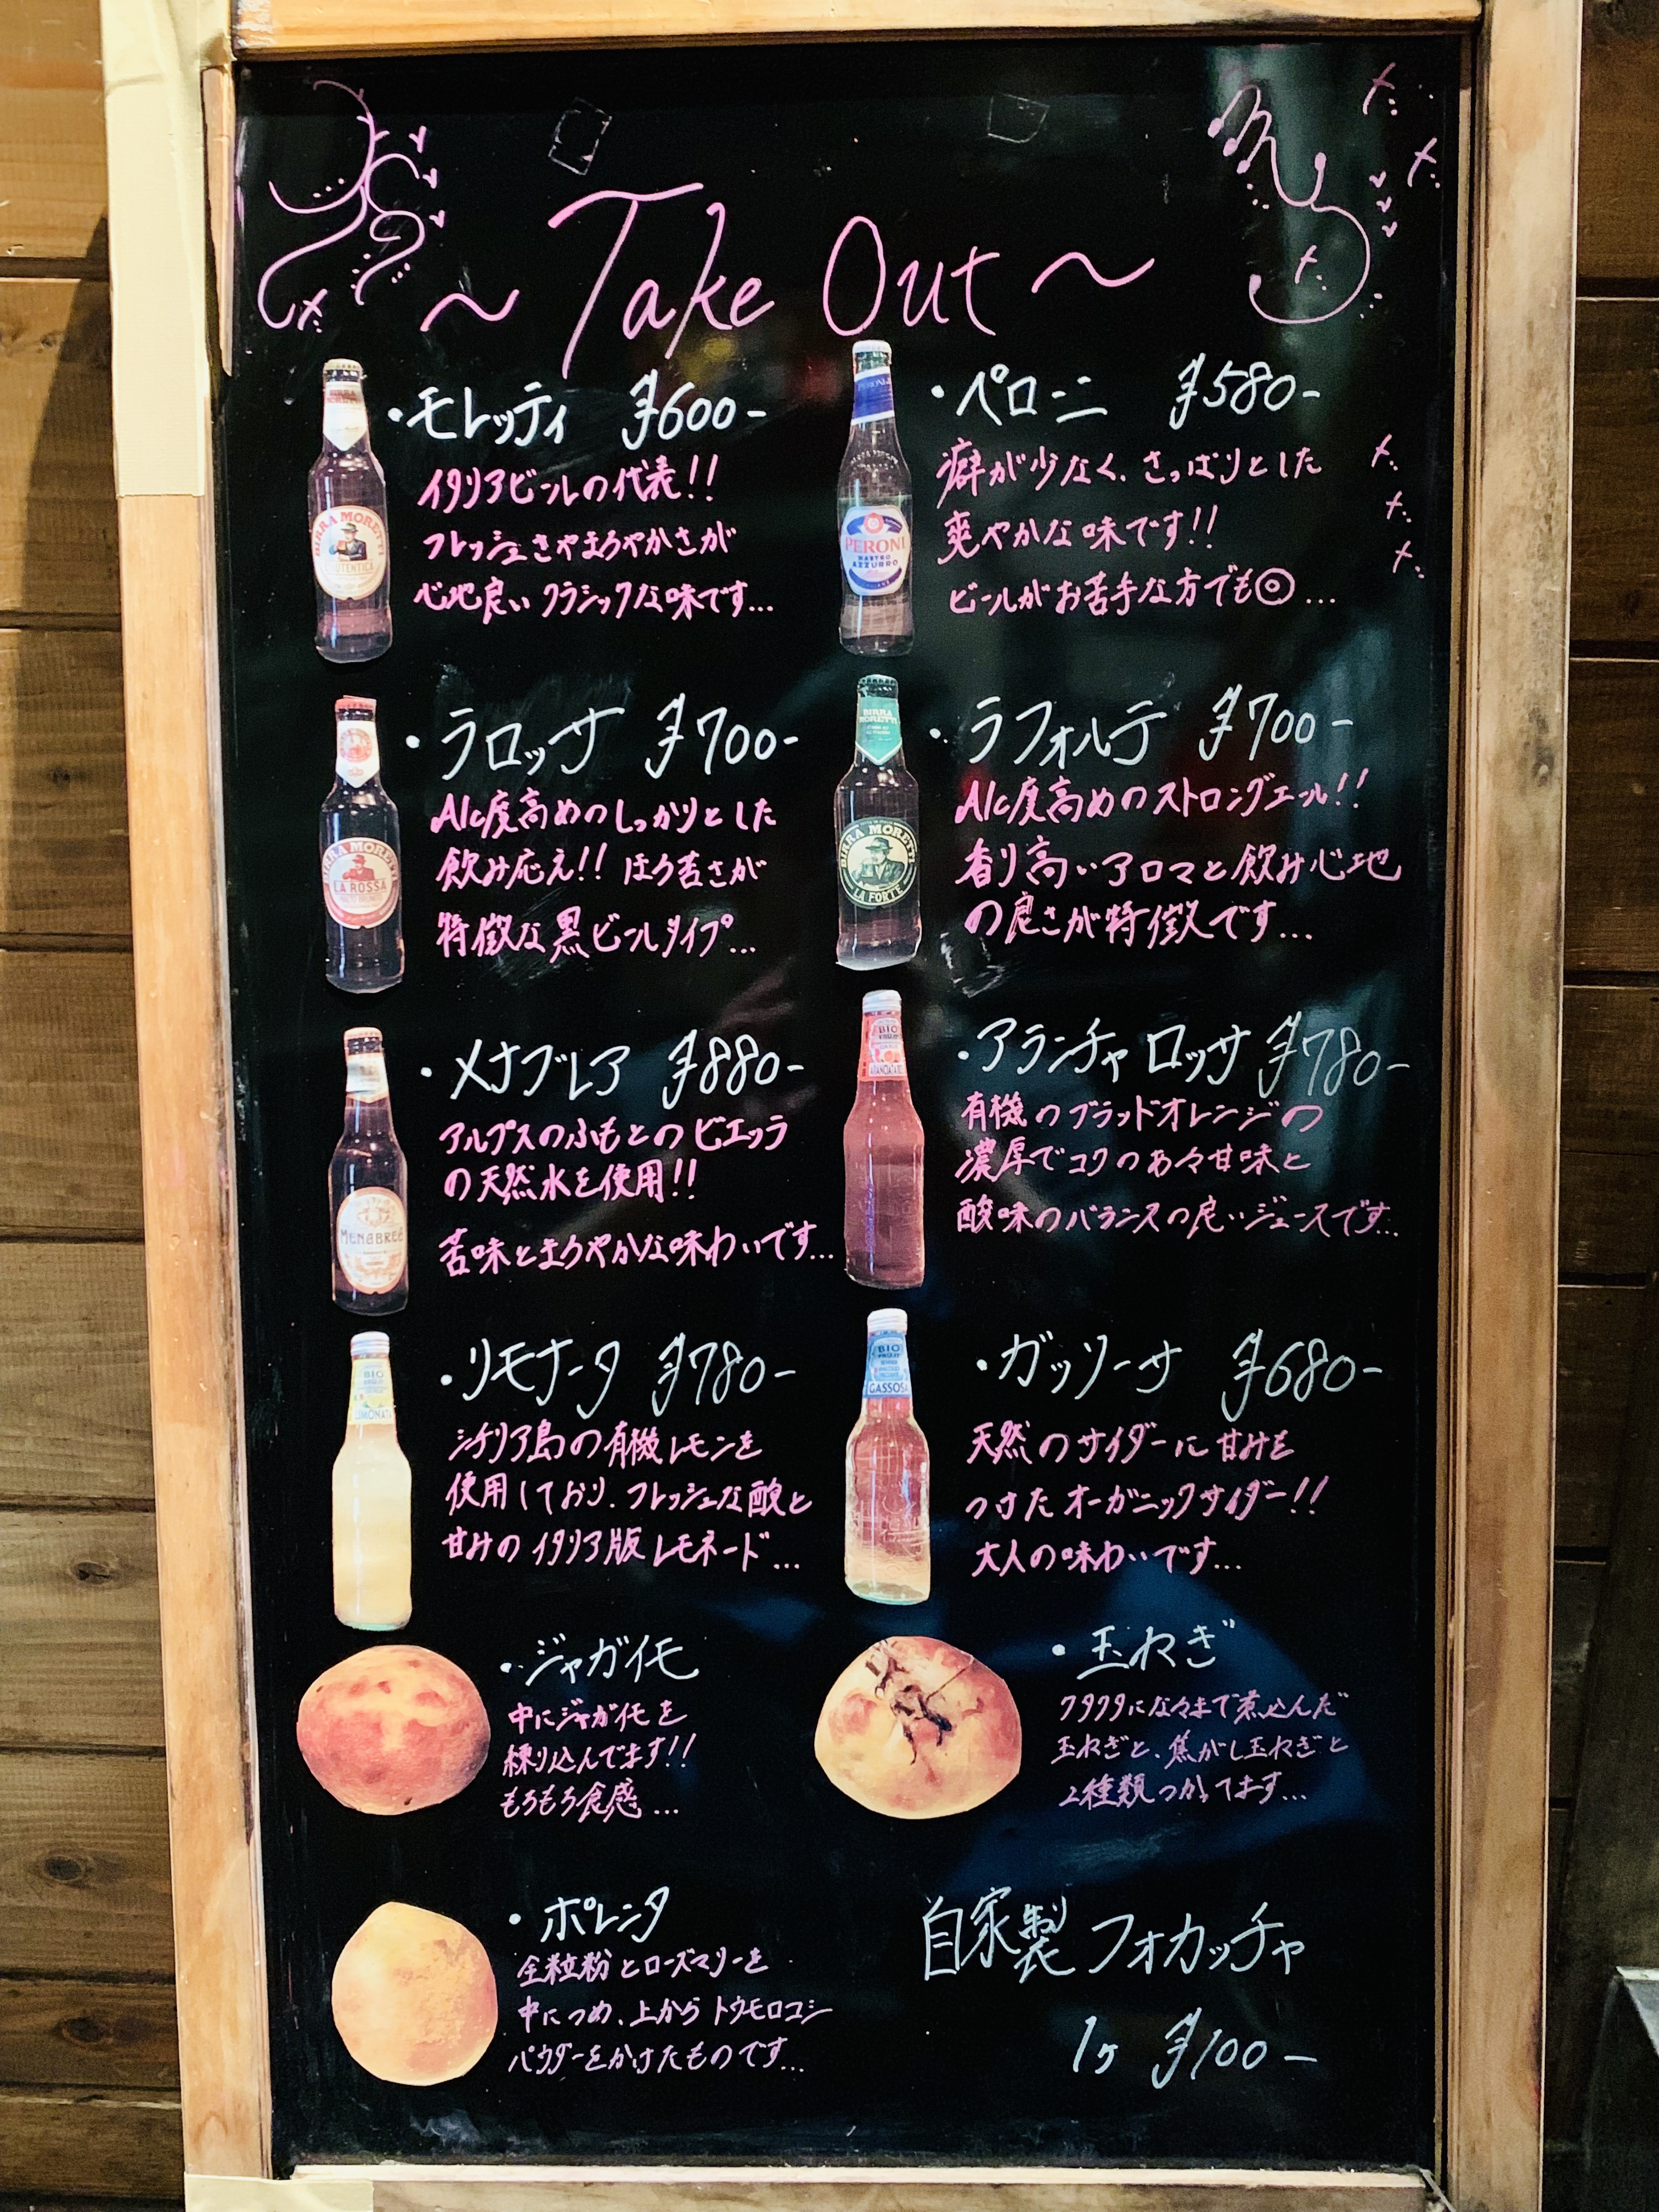 ~ Take Out ~
・モレッティ ¥600-
イタリアビールの代表!!
フレッシュさやまろやかさが
心地良い クラシックな味です...
・ペローニ ¥580-
癖が少なく、さっぱりとした
爽やかな味です!!
ビールがお苦手な方でも◎...
・ラロッサ ¥700-
Alc度高めのしっかりとした
飲み応え!! ほろ苦さが
特徴な黒ビールタイプ...
・ラフォルテ ¥700-
Alc度高めのストロングエール!!
香り高いアロマと飲み心地
の良さが特徴です...
・メナブレア ¥880-
アルプスのふもとのビエッラ
の天然水を使用!!
苦味とまろやかな味わいです...
・アランチャ ロッサ ¥780-
有機のブラッドオレンジの
濃厚でコクのある甘味と
酸味のバランスの良いジュースです...
・リモナータ ¥780-
シチリア島の有機レモンを
使用しており、フレッシュな酸と
甘みのイタリア版レモネード...
・ガッソーサ ¥680-
天然のサイダーに甘みを
つけたオーガニックサイダー!!
大人の味わいです...
・ジャガイモ
中にジャガイモを
練り込んでます!!
もちもち食感...
・玉ねぎ
クタクタになるまで煮込んだ
玉ねぎと、焦がし玉ねぎと
2種類つかってます...
・ポレンタ
全粒粉とローズマリーを
中につめ、上からトウモロコシ
パウダーをかけたものです...
自家製フォカッチャ
1ヶ ¥100-
BIRRA MORETTI
PERONI
NASTRO
AZZURRO
BIRRA MORETTI
LA ROSSA
BIRRA
MORETTI
BIRRA MORETTI
LA FORTE
MENABREA
BIO
BIO
LIMONATA
BIO
GASSOSA